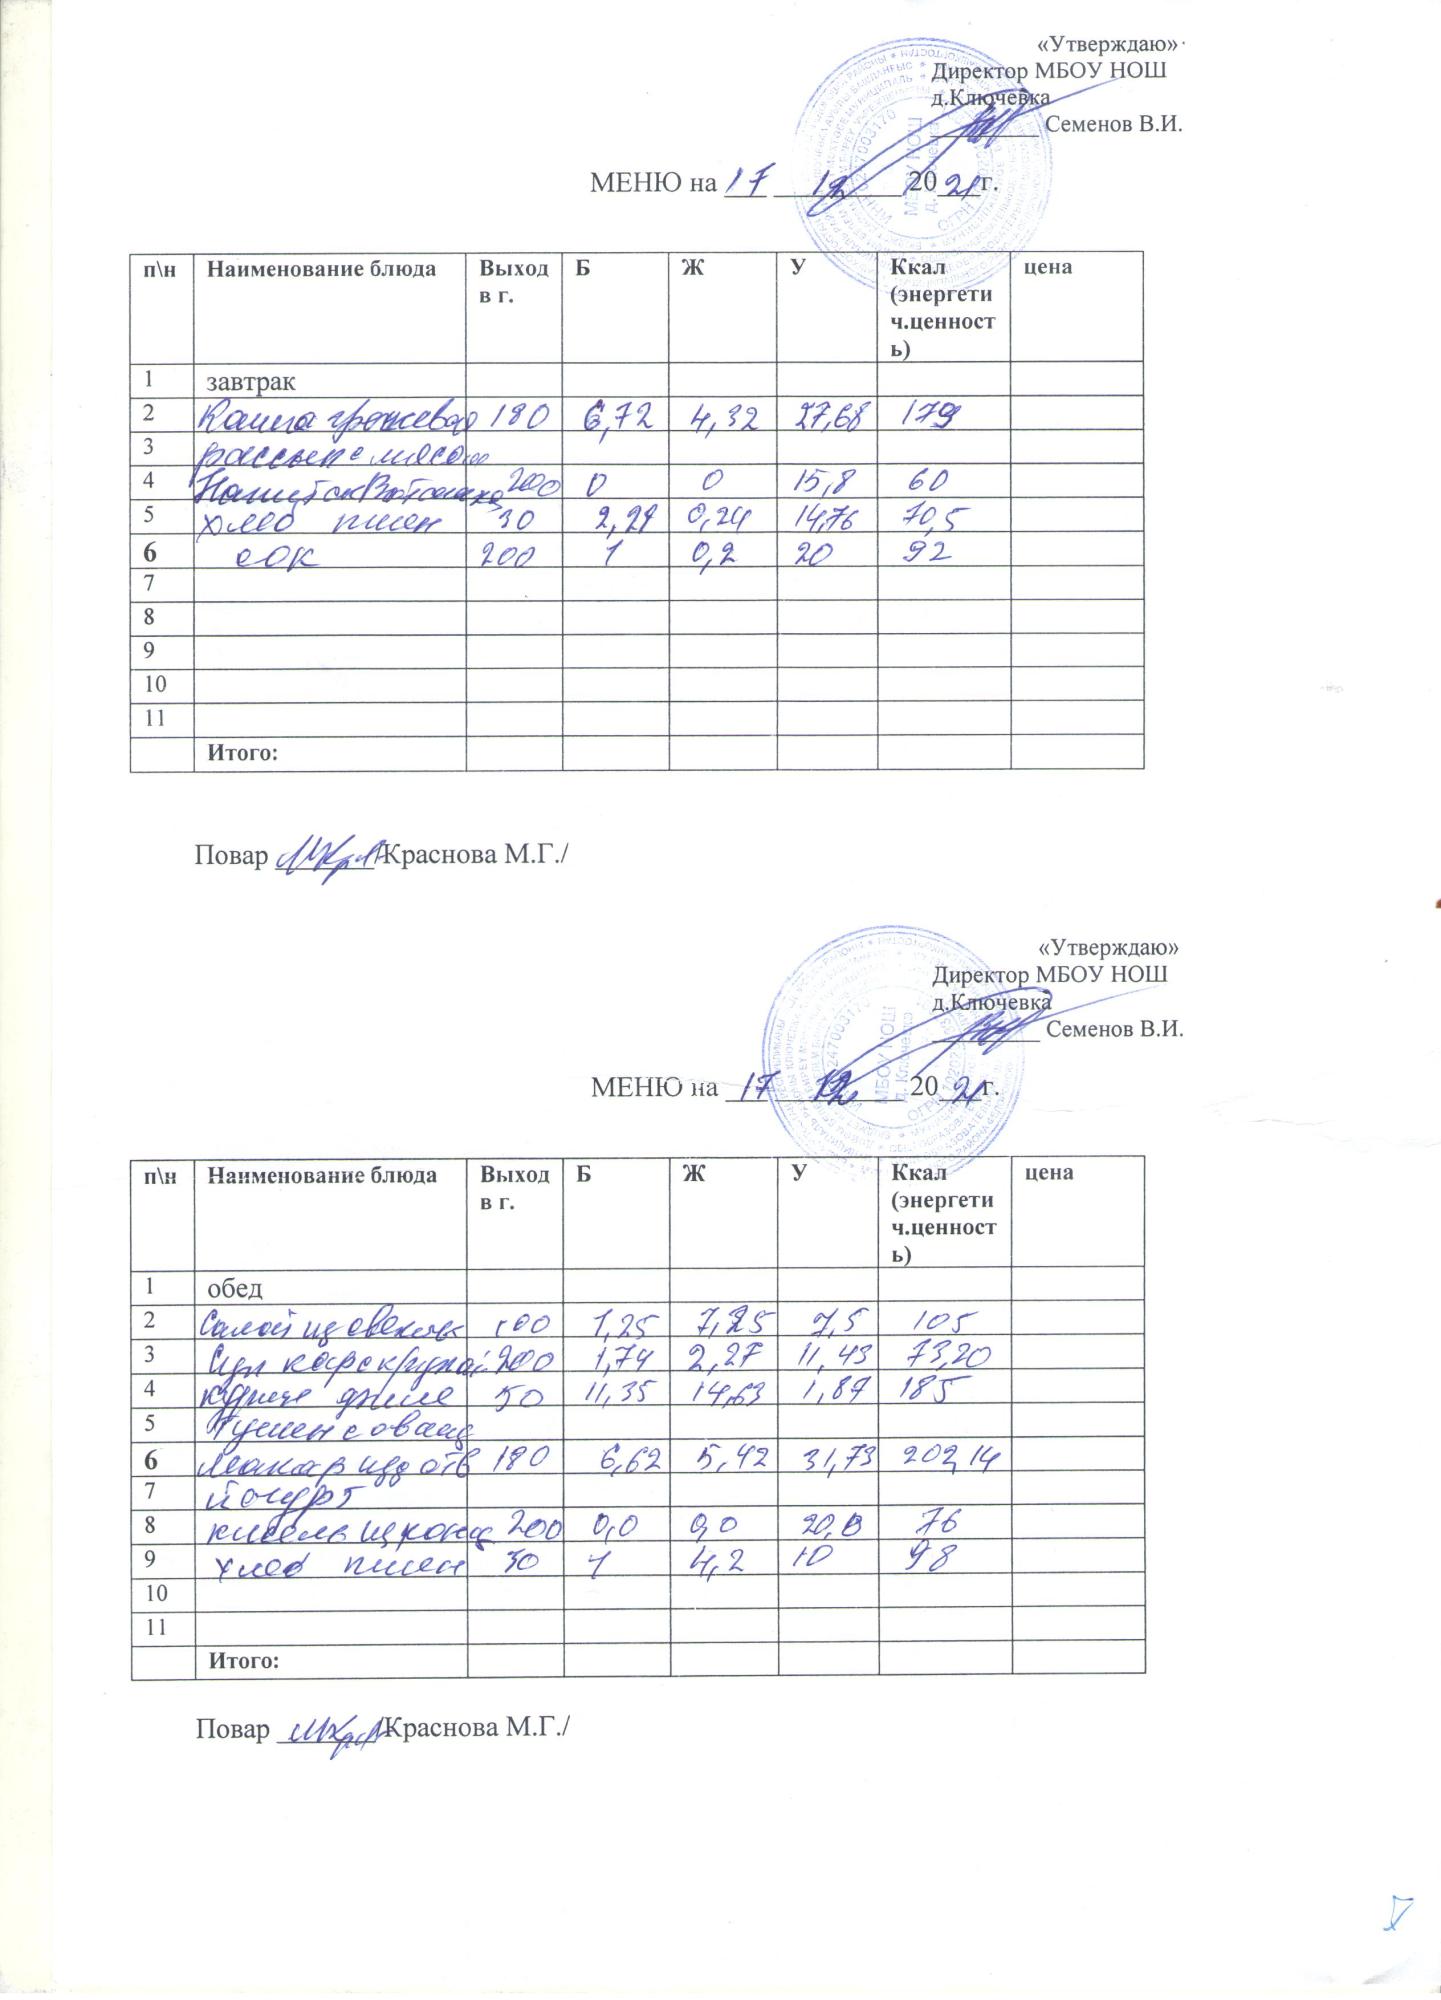 «Утверждаю»
Директор МБОУ НОШ
д.Ключевка
Семенов В.И.
МЕНЮ на 17 12 2021г.
п\н Наименование блюда Выход в г. Б Ж У Ккал (энергетич.ценность) цена
1 завтрак
2 Каша гречневая 180 6,72 4,32 27,68 179
3 рассып с мясом
4 Напиток Витошка 200 0 0 15,8 60
5 хлеб пшен 30 2,29 0,24 14,76 70,5
6 сок 200 1 0,2 20 92
7
8
9
10
11
Итого:
Повар /Краснова М.Г./
«Утверждаю»
Директор МБОУ НОШ
д.Ключевка
Семенов В.И.
МЕНЮ на 17 12 2021г.
п\н Наименование блюда Выход в г. Б Ж У Ккал (энергетич.ценность) цена
1 обед
2 Салат из свеклы 100 1,25 7,25 7,5 105
3 Суп карт с крупой 200 1,74 2,27 11,43 73,20
4 филе 50 11,35 14,63 1,87 185
5 Тушен с овощ
6 Макар изд отв 180 6,62 5,42 31,73 202,14
7 йогурт
8 кисель из конц 200 0,0 0,0 20,0 76
9 хлеб пшен 30 1 4,2 10 98
10
11
Итого:
Повар /Краснова М.Г./